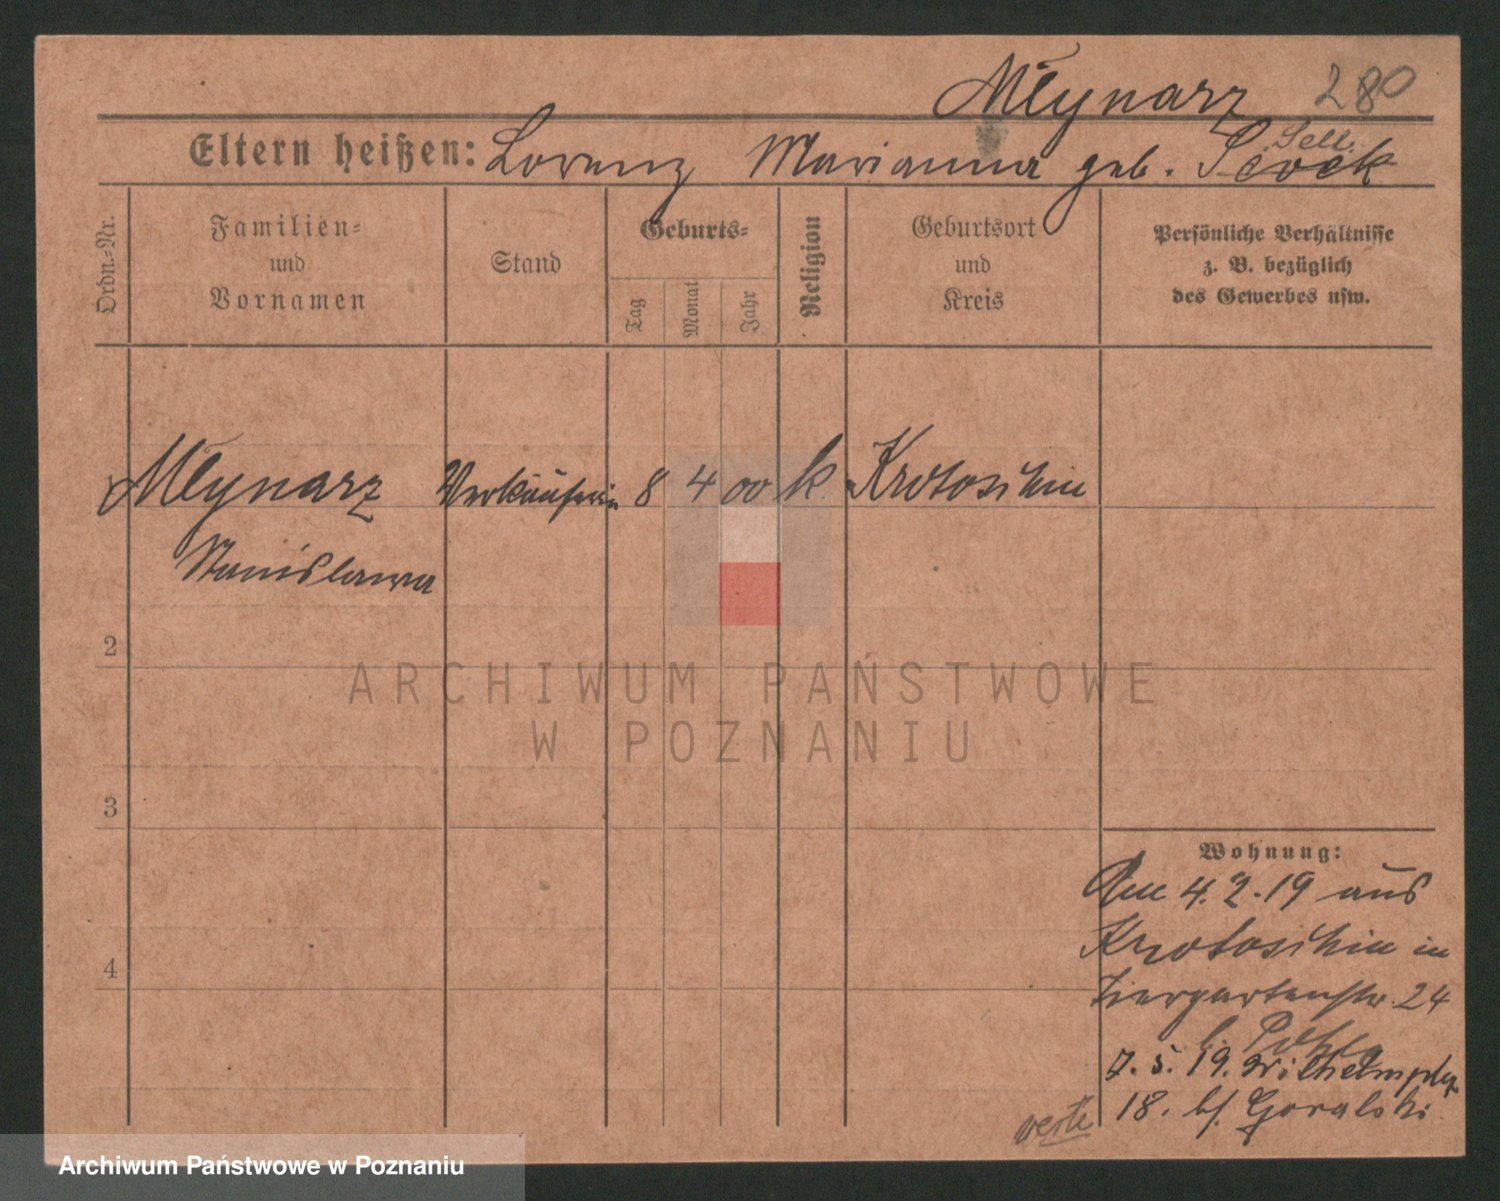 Młynarz 280
Sell.
Eltern heißen: Lorenz Marianna geb. Scock
Ordn.-Nr.
Familien-
und
Vornamen
Stand
Geburts-
Tag
Monat
Jahr
Religion
Geburtsort
und
Kreis
Persönliche Verhältnisse
z. B. bezüglich
des Gewerbes usw.
1 Młynarz Verkäuferin 8 4 00 k Krotoschin
Stanislawa
2
3
4
Wohnung:
Am 4.2.19 aus
Krotoschin in
Tiergartenstr. 24
b.
7.5.19. Wilhelmplatz
18. b/ Goralski
verte
ARCHIWUM PAŃSTWOWE
W POZNANIU
Archiwum Państwowe w Poznaniu